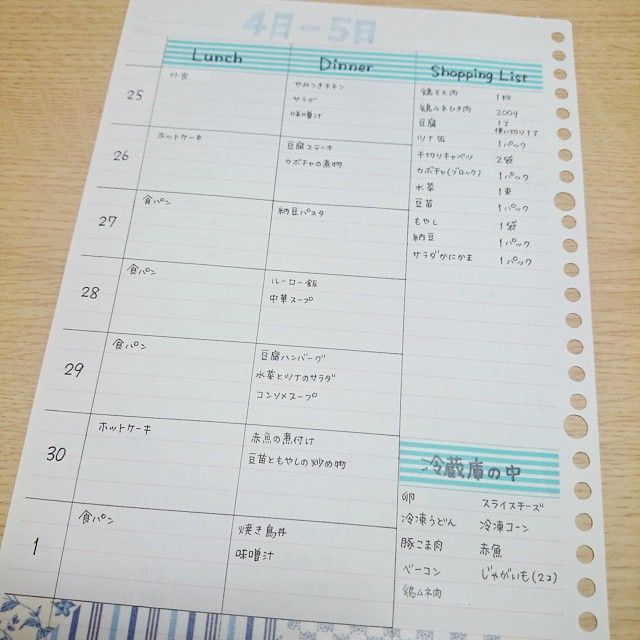 4月-5月
Lunch Dinner Shopping List
25
外食
やみつきチキン
サラダ
味噌汁
26
ホットケーキ
豆腐ステーキ
カボチャの煮物
27
食パン
納豆パスタ
28
食パン
ルーロー飯
中華スープ
29
食パン
豆腐ハンバーグ
水菜とツナのサラダ
コンソメスープ
30
ホットケーキ
赤魚の煮付け
豆苗ともやしの炒め物
1
食パン
焼き鳥丼
味噌汁
鶏もも肉 1枚
鶏ムネひき肉 200g
豆腐 1丁 使い切り1丁
ツナ缶 1パック
千切りキャベツ 2袋
カボチャ(ブロック) 1パック
水菜 1束
豆苗 1パック
もやし 1袋
納豆 1パック
サラダかにかま 1パック
冷蔵庫の中
卵 スライスチーズ
冷凍うどん 冷凍コーン
豚こま肉 赤魚
ベーコン じゃがいも(2コ)
鶏ムネ肉